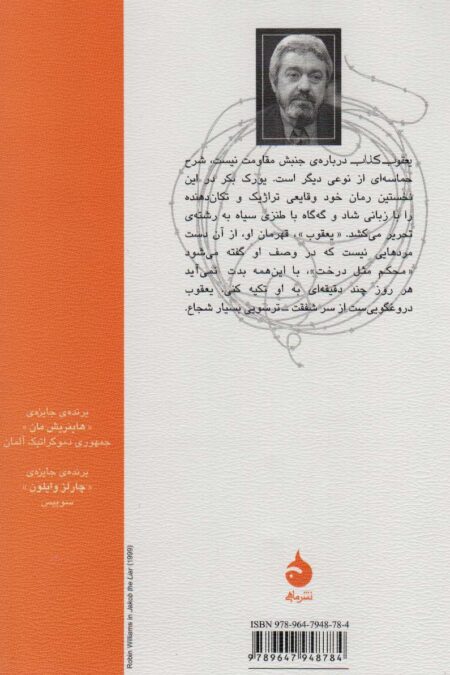 یعقوب کذاب درباره‌ی جنبش مقاومت نیست، شرح
حماسه‌ای از نوعی دیگر است. یورک بکر در این
نخستین رمان خود وقایعی تراژیک و تکان‌دهنده
را با زبانی شاد و گه‌گاه با طنزی سیاه به رشته‌ی
تحریر می‌کشد. «یعقوب»، قهرمان او، از آن دست
مردهایی نیست که در وصف او گفته می‌شود
«محکم مثل درخت»، با این‌همه بدت نمی‌آید
هر روز چند دقیقه‌ای به او تکیه کنی. یعقوب
دروغگویی‌ست از سر شفقت ــ ترسویی بسیار شجاع.
برنده‌ی جایزه‌ی
«هاینریش مان»
جمهوری دموکراتیک آلمان
برنده‌ی جایزه‌ی
«چارلز وایلون»
سوییس
Robin Williams in Jakob the Liar (1999)
نشرماهی
ISBN 978-964-7948-78-4
9 789647 948784